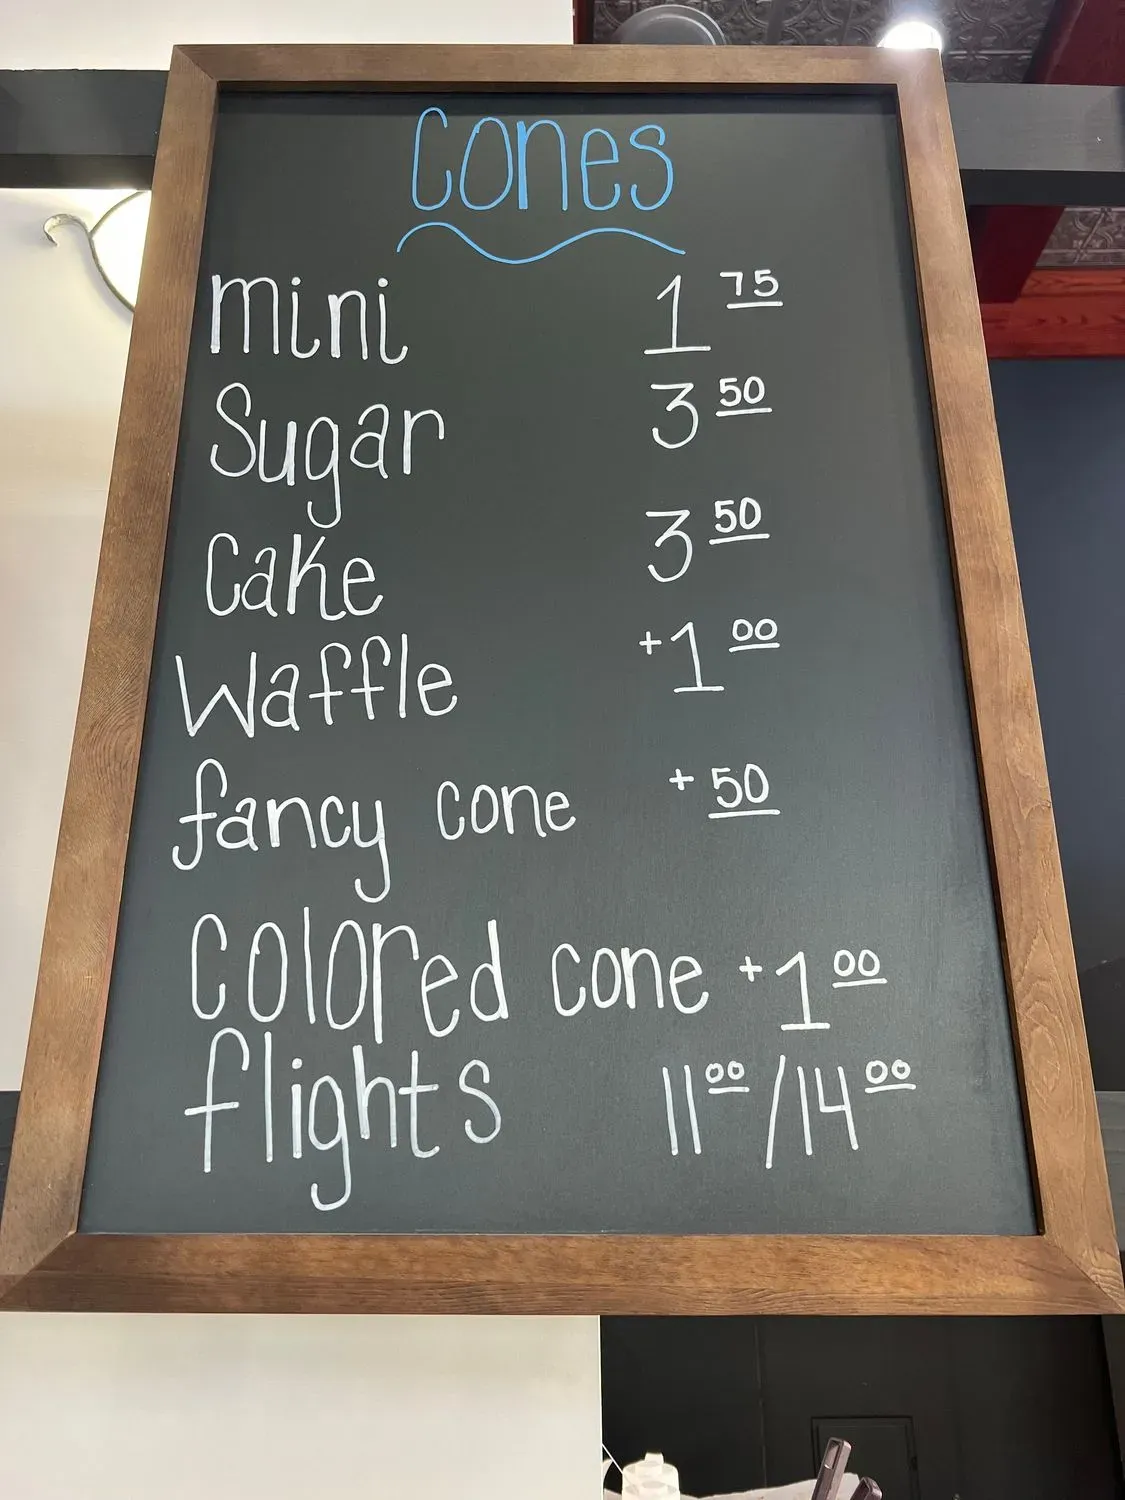 Cones
mini 1 75
Sugar 3 50
Cake 3 50
Waffle +1 00
fancy cone + 50
Colored cone +1 00
flights 11 00 / 14 00